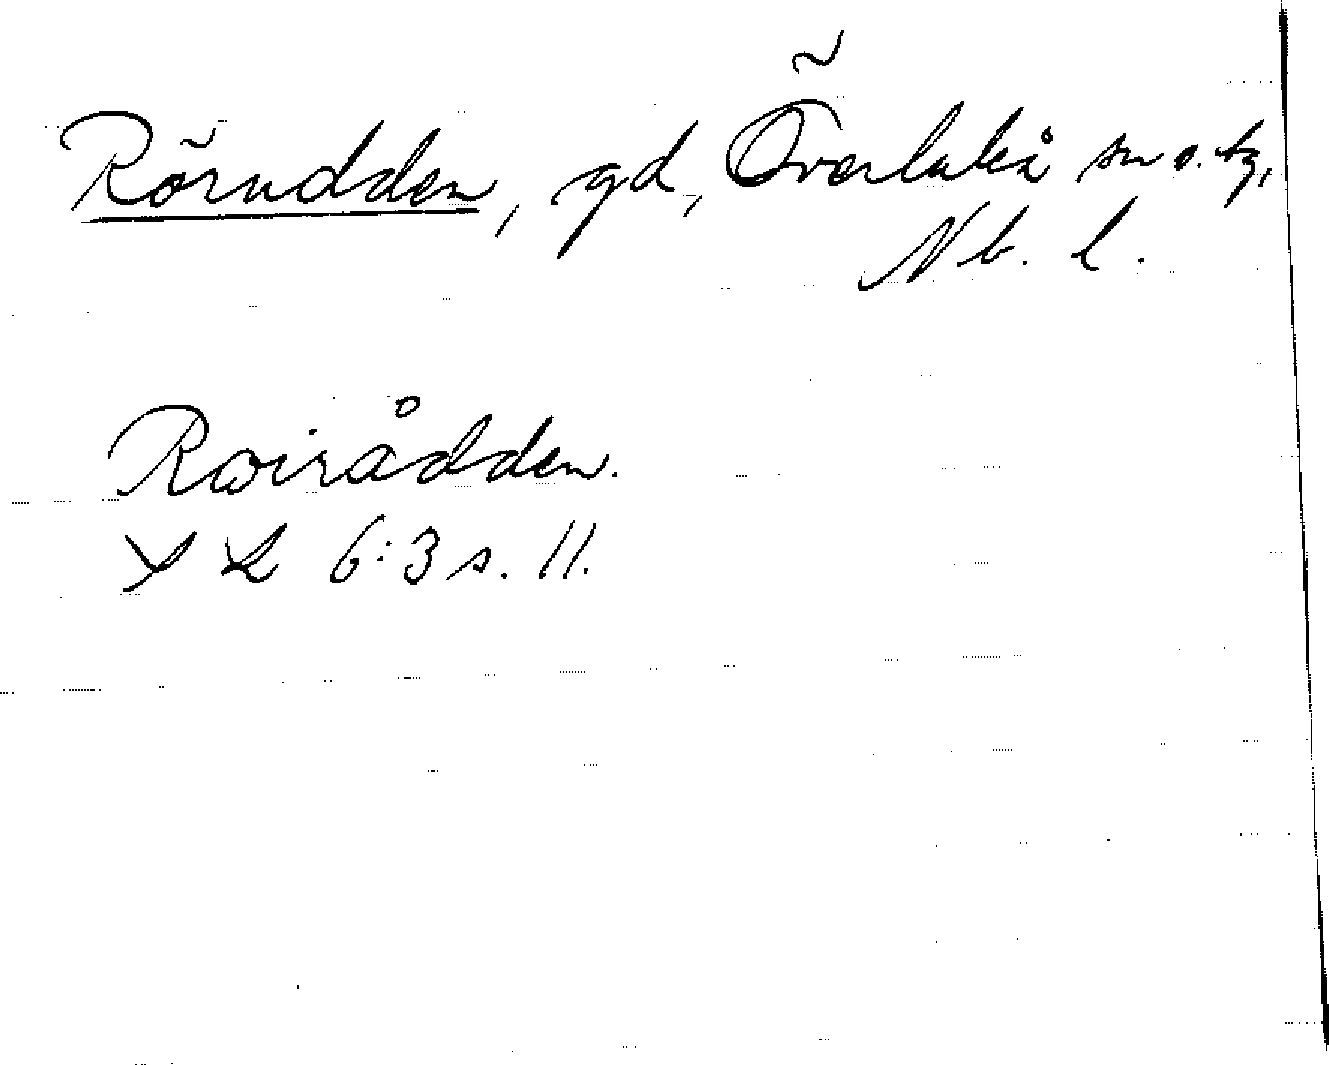 Rörudden, gd, Överluleå sn o. tg,
Nb. l.
Roirådden.
6:3 s. 11.